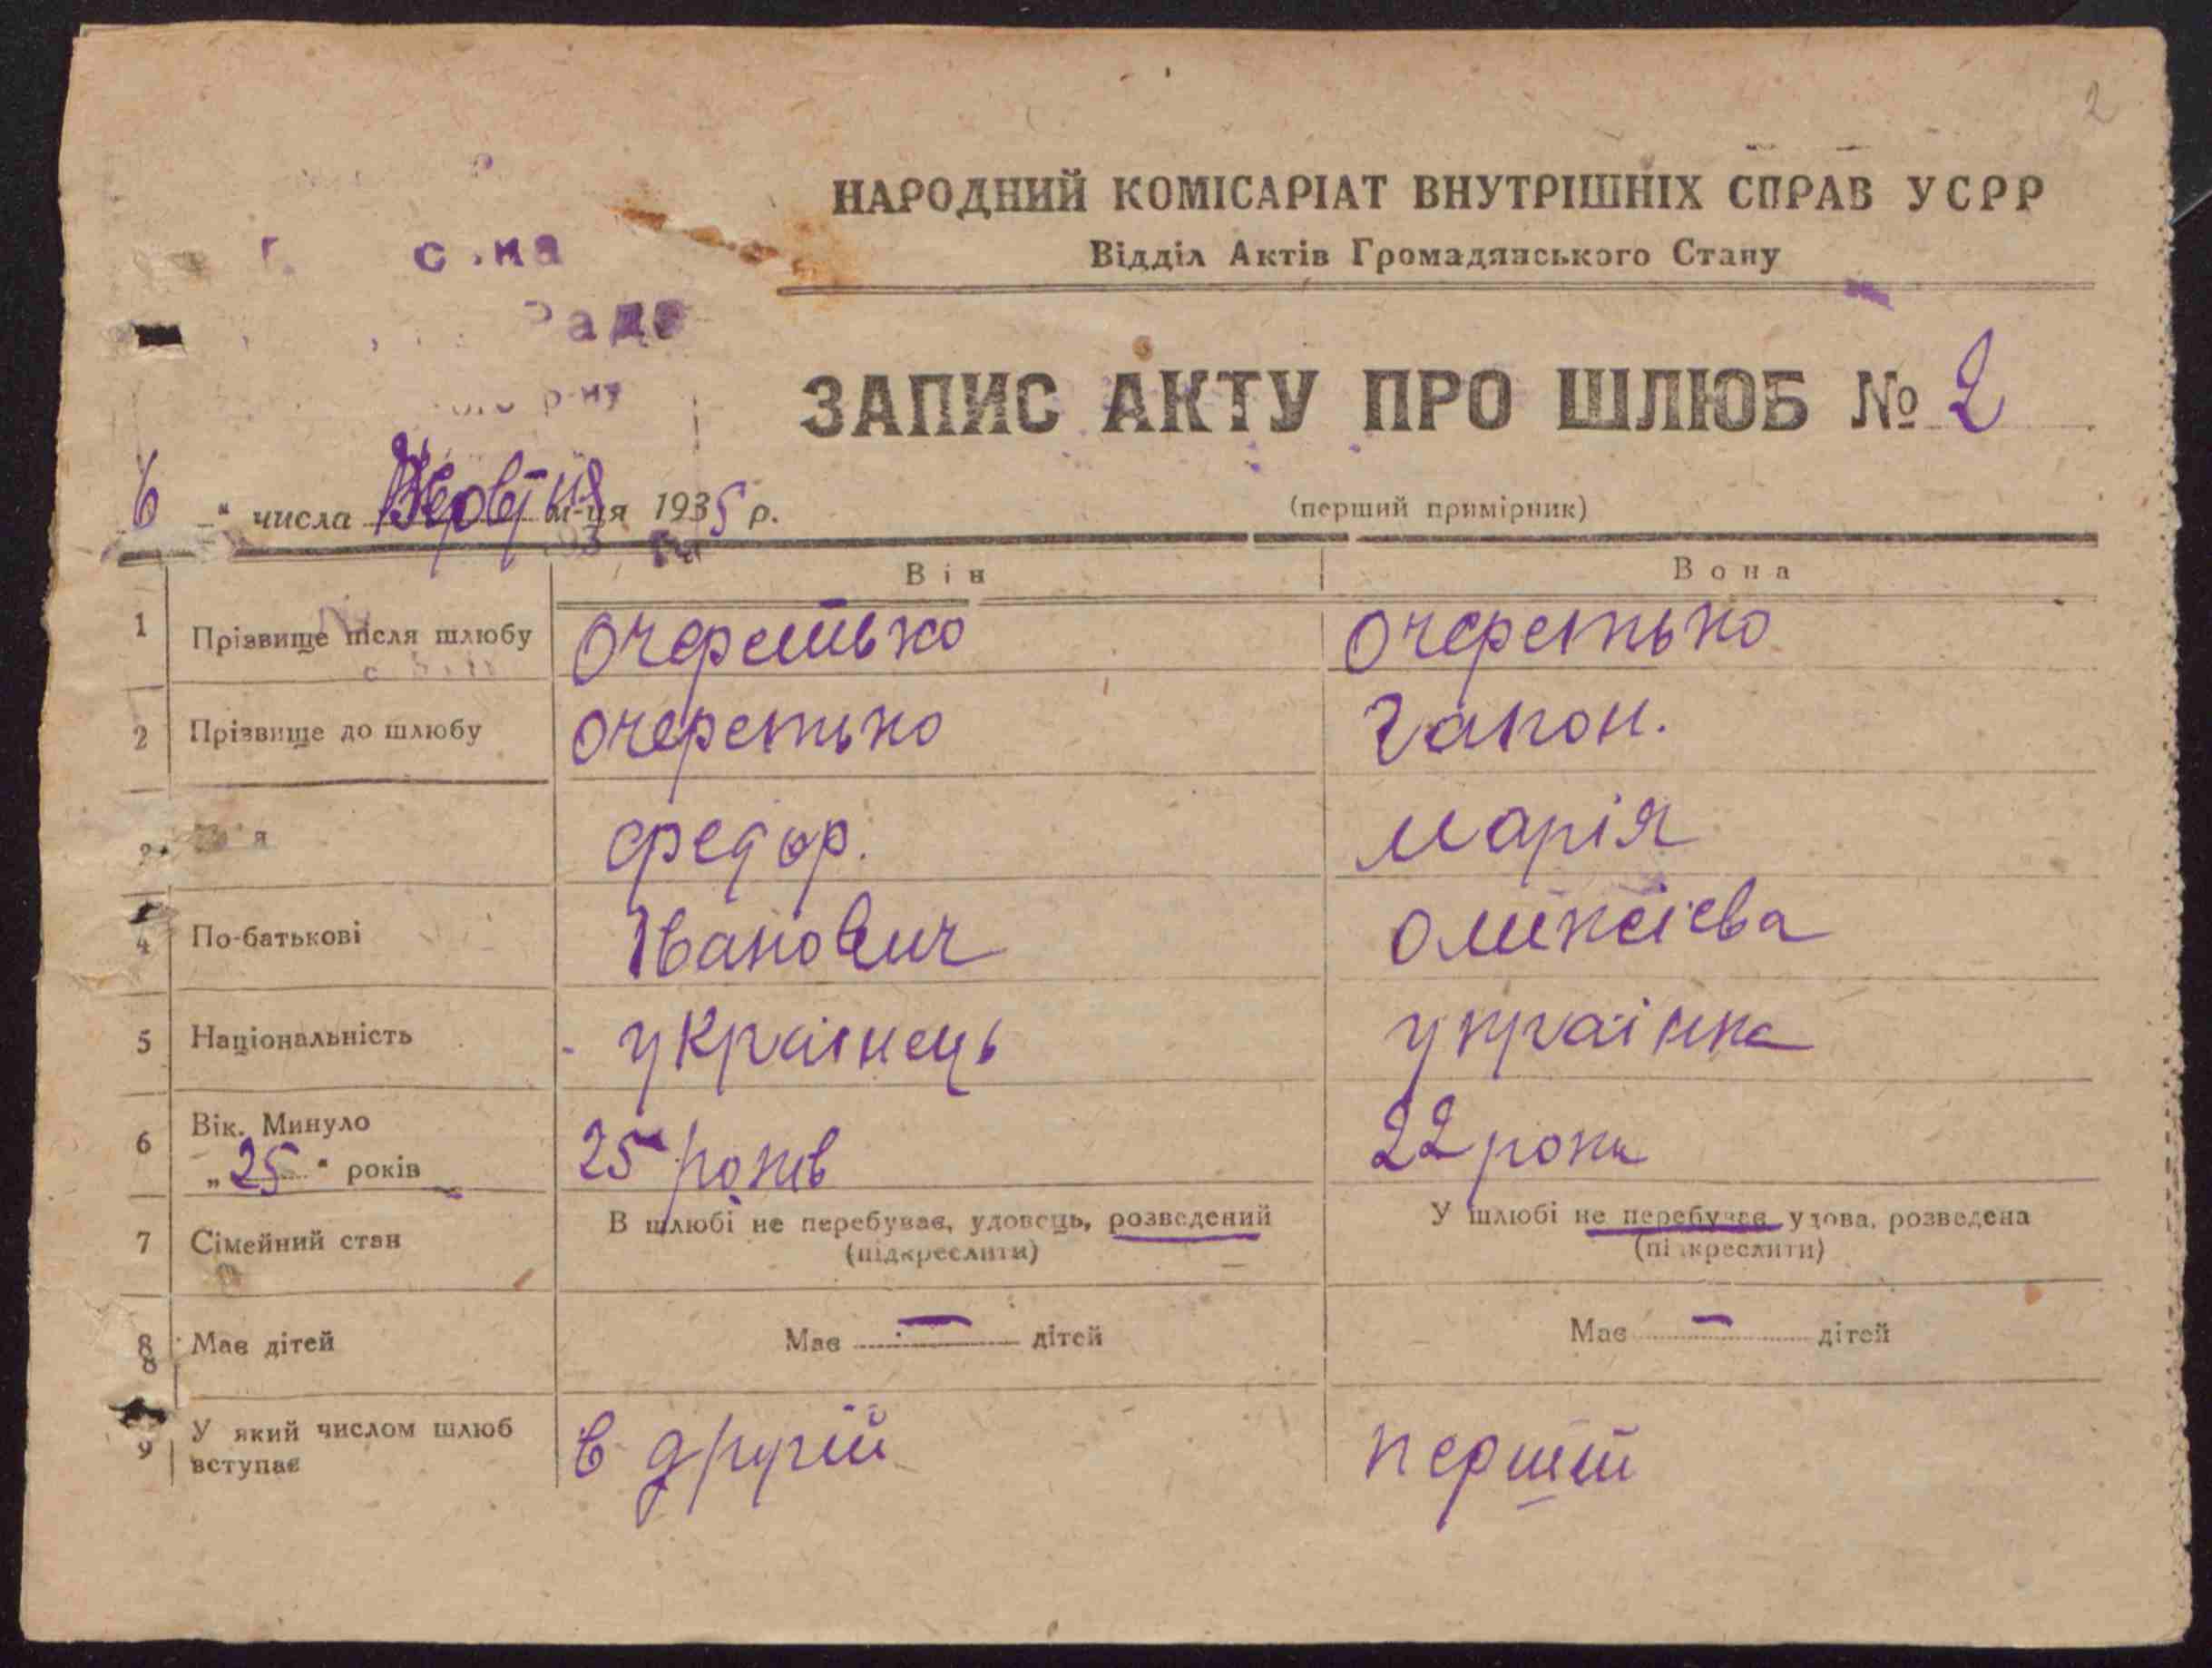 2
НАРОДНИЙ КОМІСАРІАТ ВНУТРІШНІХ СПРАВ УСРР
Відділ Актів Громадянського Стану
Рада
р-ну
ЗАПИС АКТУ ПРО ШЛЮБ № 2
6 " числа м-ця 1935 р.
(перший примірник)
Він Вона
1 Прізвище після шлюбу Очеретько Очеретько
2 Прізвище до шлюбу Очеретько Гапон.
я Федор. Марія
4 По-батькові Іванович Олексієва
5 Національність - українець українка
6 Вік. Минуло
„25" років 25 років 22 роки
7 Сімейний стан В шлюбі не перебуває, удовець, розведений У шлюбі не перебуває удова, розведена
(підкреслити) (підкреслити)
8 Має дітей Має — дітей Має — дітей
8
9 У який числом шлюб
вступає в другій перший